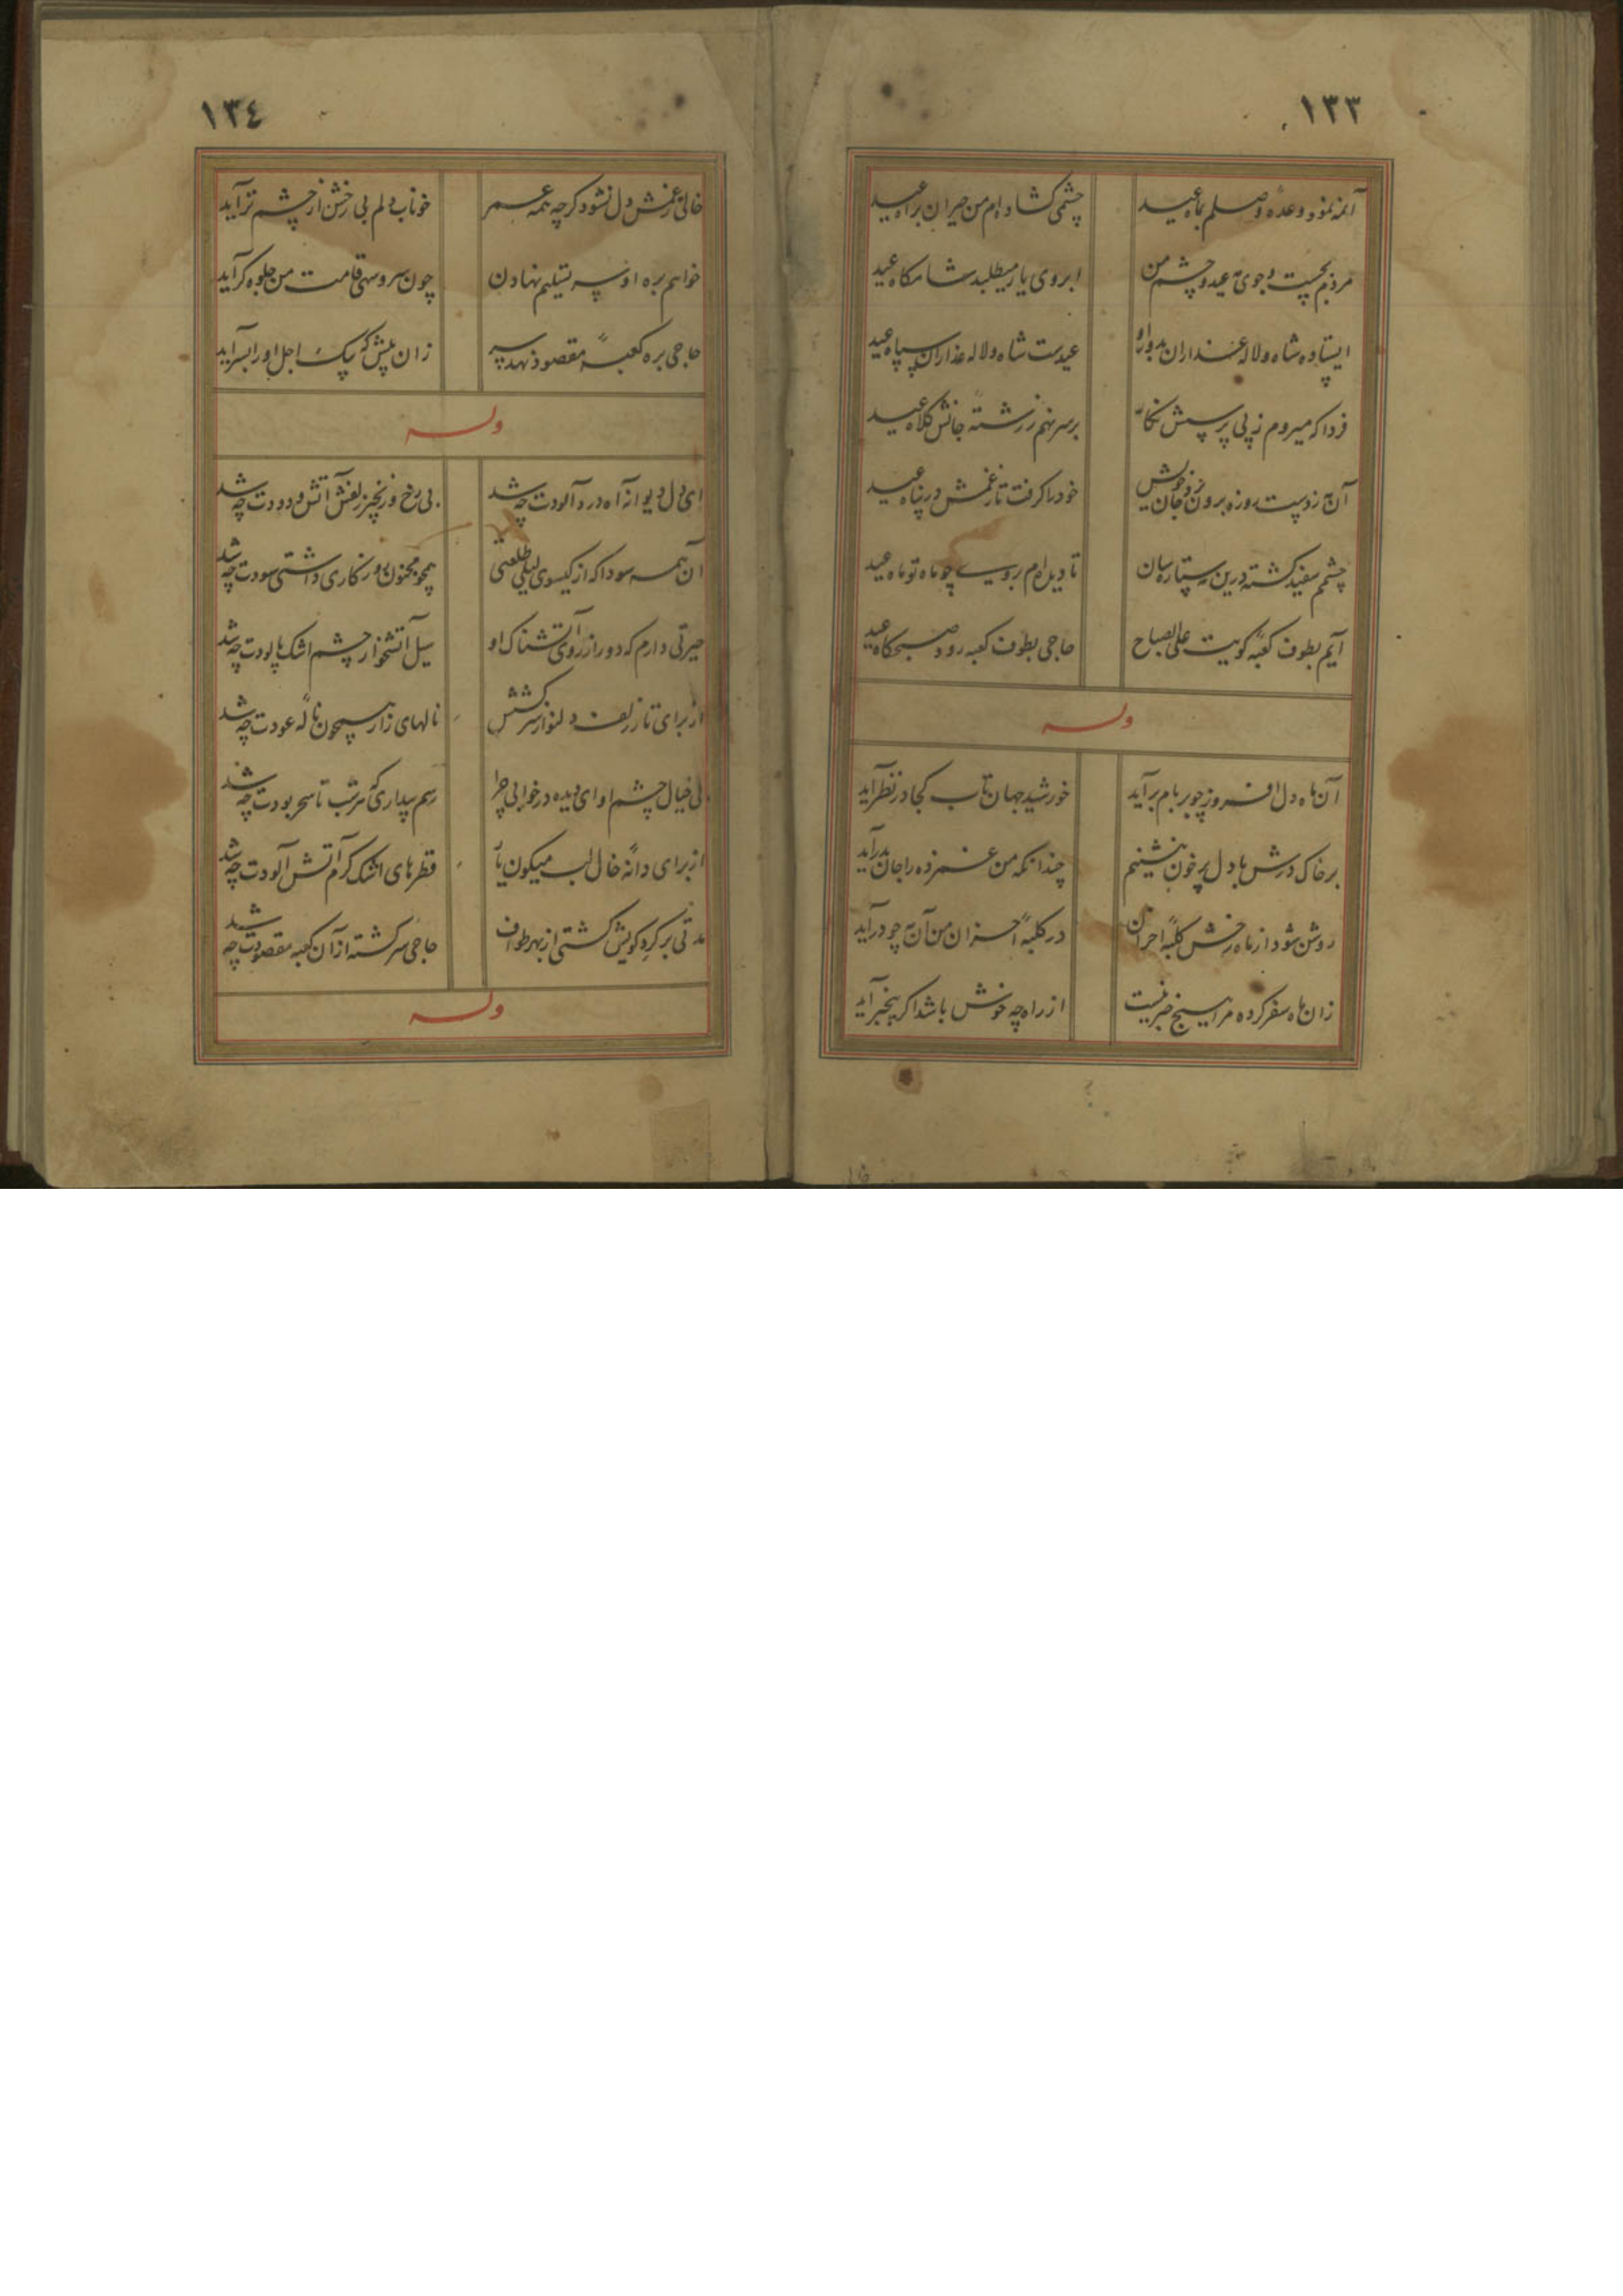 ١٣٣
آنمه نمود وعدهٔ وصلم بماه عید چشمی گشاده‌ام من حیران براه عید
مردم بجست وجوی مه عید و چشم من ابروی یار میطلبد شامگاه عید
ایستاده شاه و لاله عذاران بدور او عیدست شاه و لاله عذاران سپاه عید
فردا که میروم ز پی پرسش نگار بر سر نهم ز رشتهٔ جانش کلاه عید
آن مه ز پوست روزه برون خود را گرفت تا ز غمش در پناه عید
چشمم سفید گشته درین مه ستاره سان تا دیده‌ام رویت چو ماه تو ماه عید
آیم بطوف کعبهٔ کویت علی الصباح حاجی بطوف کعبه رود صبحگاه عید
وله
آن ماه دل افروز چو بر بام برآید خورشید جهان تاب کجا در نظر آید
بر خاک درش با دل پر خون بنشینم چندانکه من غمزده را جان بدر آید
روشن شود از ماه رخش کلبهٔ احزان در کلبهٔ احزان من آن مه چو درآید
زان ماه سفر کرده مرا هیچ خبر نیست از راه چه خوش باشد اگر بیخبر آید
١٣٤
خالی ز غمش دل نشود گرچه همه عمر خوناب دلم بی رخش از چشم تر آید
خواهم بره او سر تسلیم نهادن چون سرو سهی قامت من جلوه گر آید
حاجی بره کعبهٔ مقصود نهد سر زان پیش که پیک اجل او را بسر آید
وله
ای دل دیوانه آه درد آلودت چه شد بی رخ و زنجیر زلفش آتش و دودت چه شد
آن همه سودا که از گیسوی لیلی طلعتی همچو مجنون روزگاری داشتی سودت چه شد
حیرتی دارم که دور از روی آتشناک او سیل آتشخوار چشم اشک پالودت چه شد
از برای تار زلف دلنواز سرکشش نالهای زار همچون نالهٔ عودت چه شد
بی خیال چشم او ای دیده در خوابی چرا رسم بیداری که هر شب تا سحر بودت چه شد
از برای دانهٔ خال لب میگون یار قطرهای اشک گرم آتش آلودت چه شد
مدتی بر گرد کویش گشتی از بهر طواف حاجی سرگشته از آن کعبه مقصودت چه شد
وله